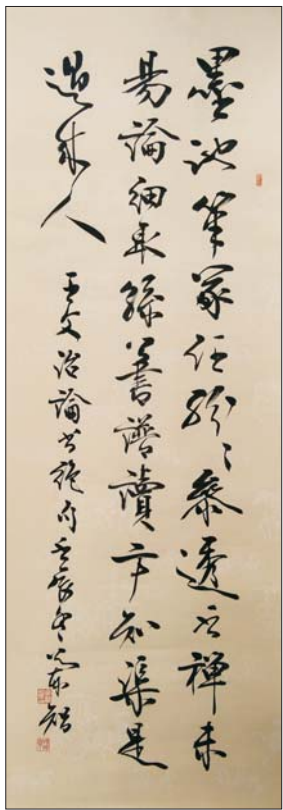 墨池筆冢任紛々參透書禅未
易論細取孫公書譜讀方知渠是
過来人 王文治論書絶句 壬辰冬